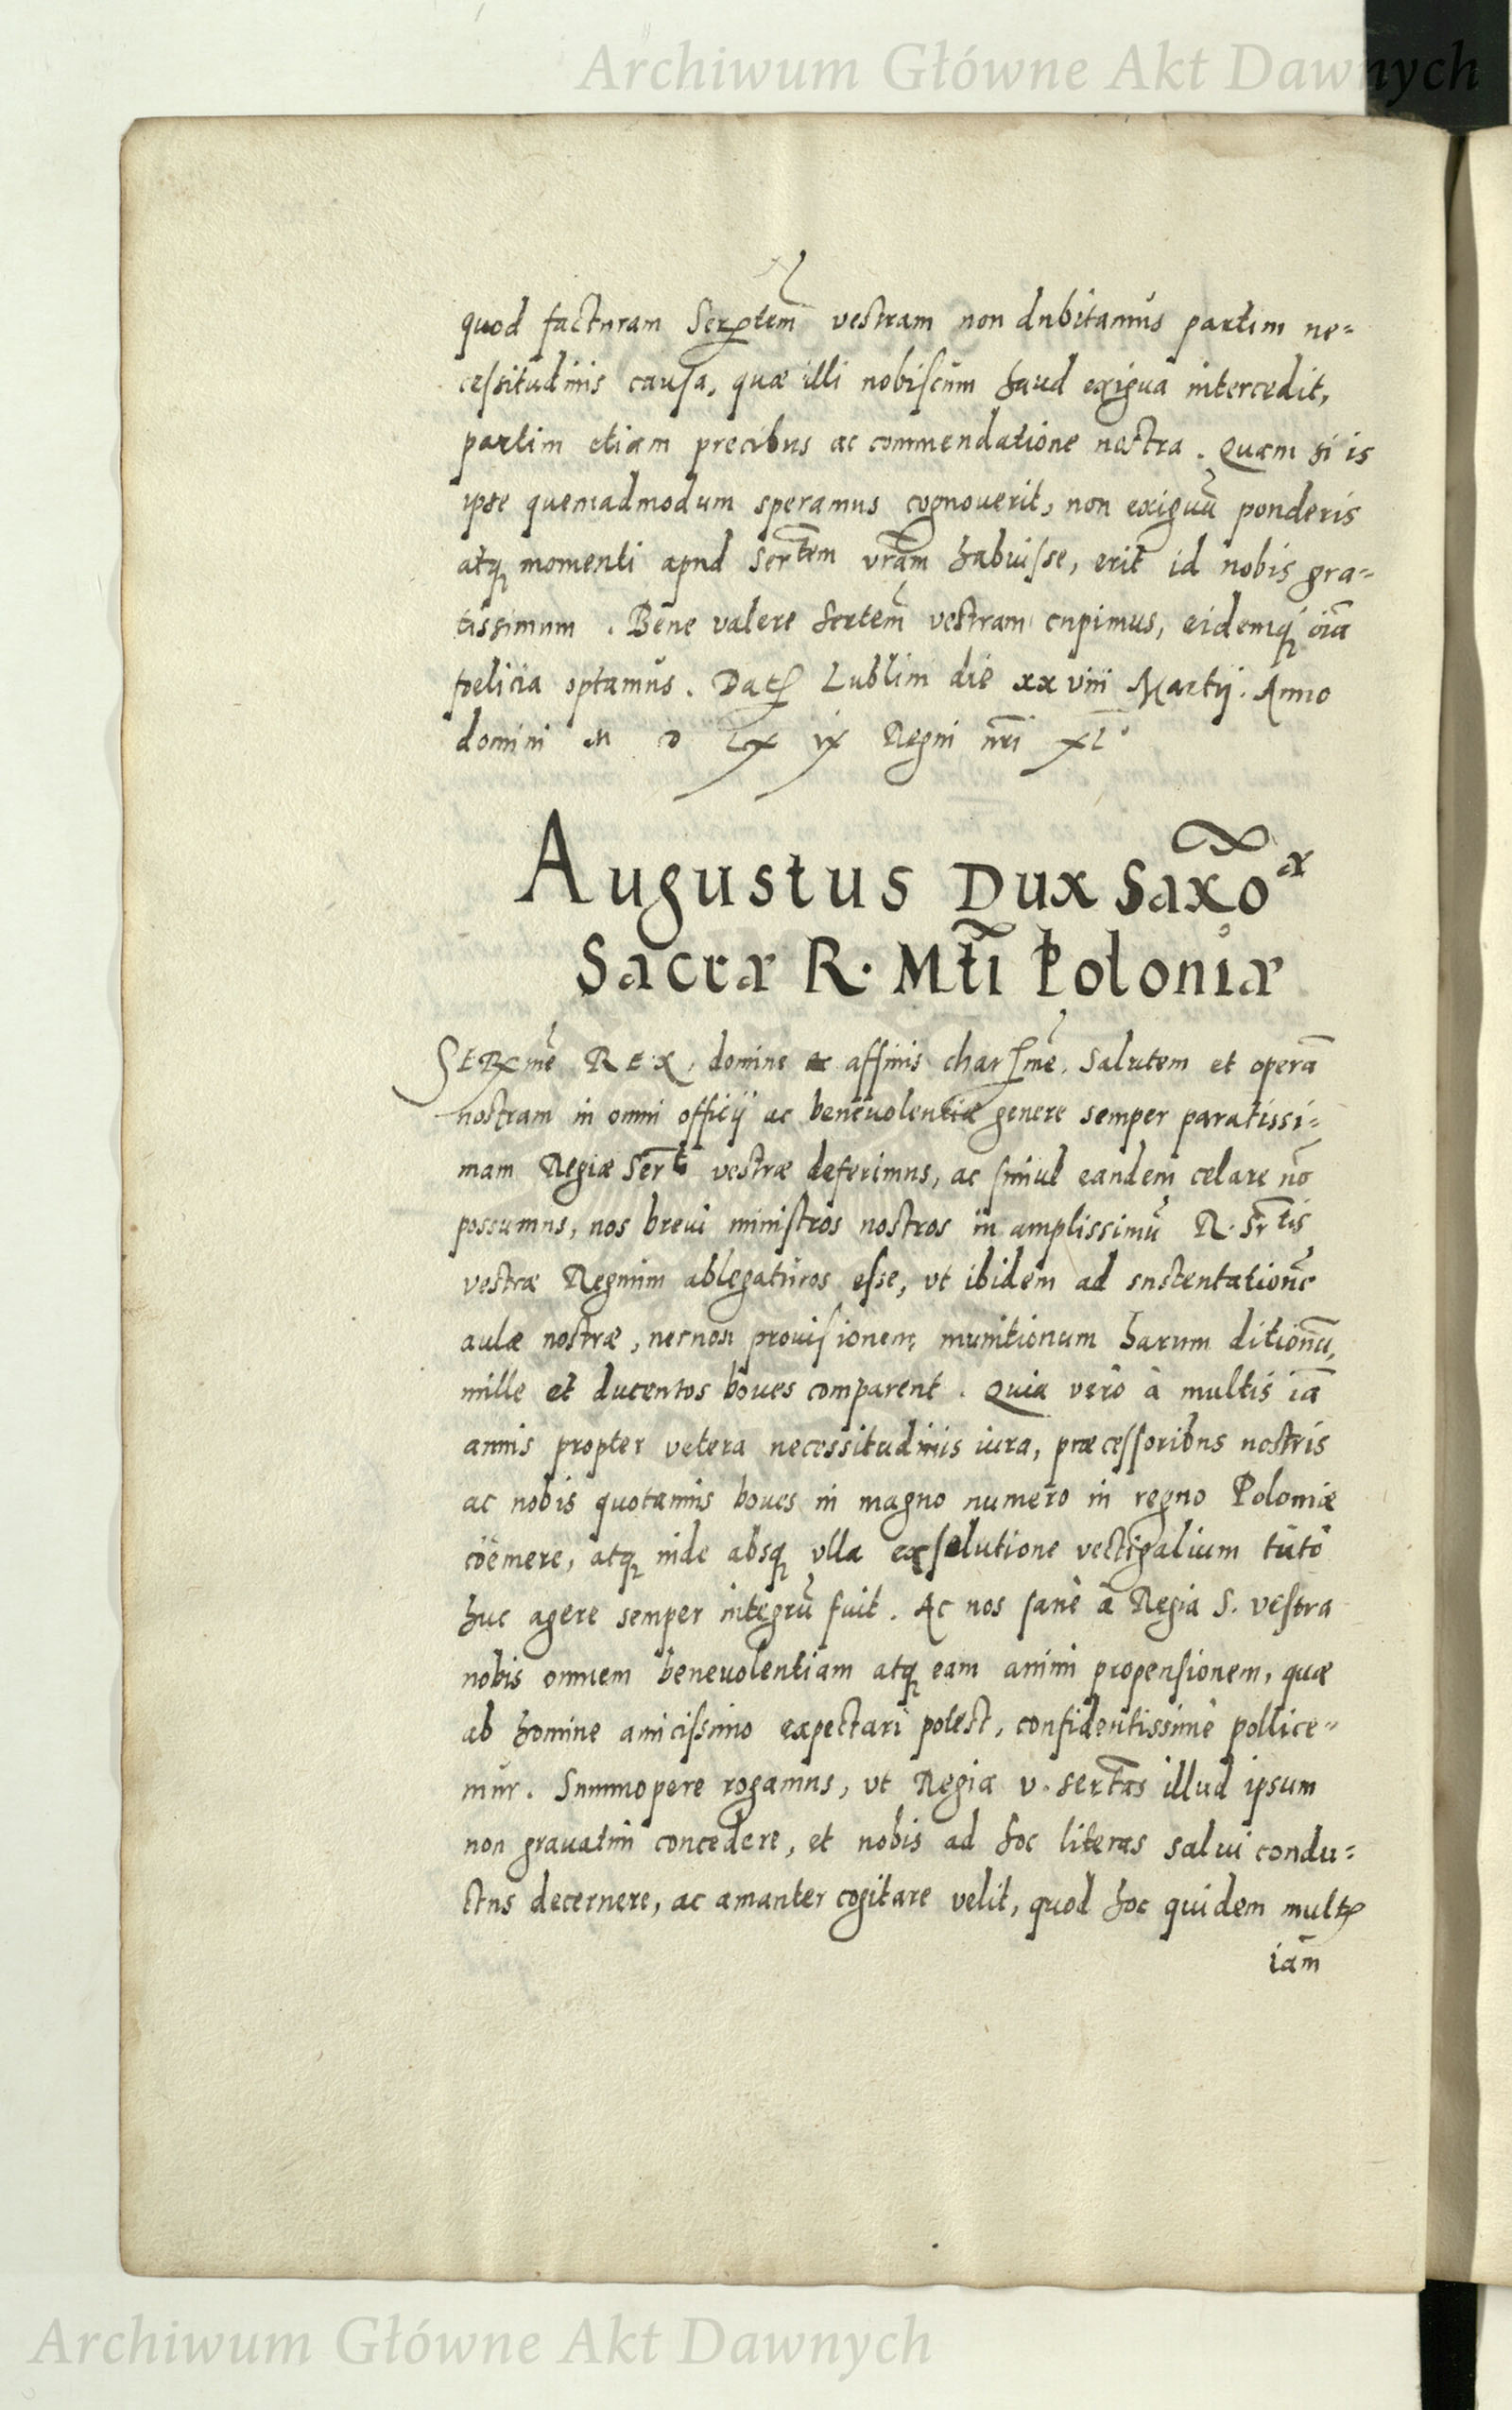 Archiwum Główne Akt Dawnych
quod facturam Serptem̃ vestram non dubitamus partim ne=
cessitudinis causa, quæ illi nobiscum haud exigua intercedit,
partim etiam precibus ac commendatione nostra. Quam si is
ipse quemadmodum speramus cognouerit, non exiguũ ponderis
atq̨ momenti apud Sertem vrãm habuisse, erit id nobis gra=
tissimum. Bene valere Sertem̃ vestram cupimus, eidemq̨ oĩa
foelicia optamus. Dat Lublini die xxviii Martij. Anno
domini M D LX ix Regni nr̃i XLo
Augustus Dux Saxõ æ
Sacræ R. Mt̃i Poloniæ
SERme REX, domine ac affinis charsme. Salutem et operã
nostram in omni officij ac beneuolentiæ genere semper paratissi=
mam Regiæ Sert vestræ deferimus, ac simul eandem celare nõ
possumus, nos breui ministros nostros in amplissimũ R. Srtis
vestræ Regnum ablegaturos esse, vt ibidem ad sustentationẽ
aulæ nostræ, necnon prouisionem munitionum harum ditionũ,
mille et ducentos boues comparent. Quia verò à multis iã
annis propter vetera necessitudinis iura, præcessoribus nostris
ac nobis quotannis boues in magno numero in regno Poloniæ
coëmere, atq̨ inde absq̨ vlla exsolutione vectigalium tutò
huc agere semper integrũ fuit. Ac nos sanè a Regia S. vestra
nobis omnem beneuolentiam atq̨ eam animi propensionem, quæ
ab homine amicissimo expectari potest, confidentissimè pollice=
mur. Summopere rogamus, vt Regia v. sertas illud ipsum
non grauatim concedere, et nobis ad hoc literas salui condu=
ctus decernere, ac amanter cogitare velit, quod hoc quidem
iam̃
Archiwum Główne Akt Dawnych